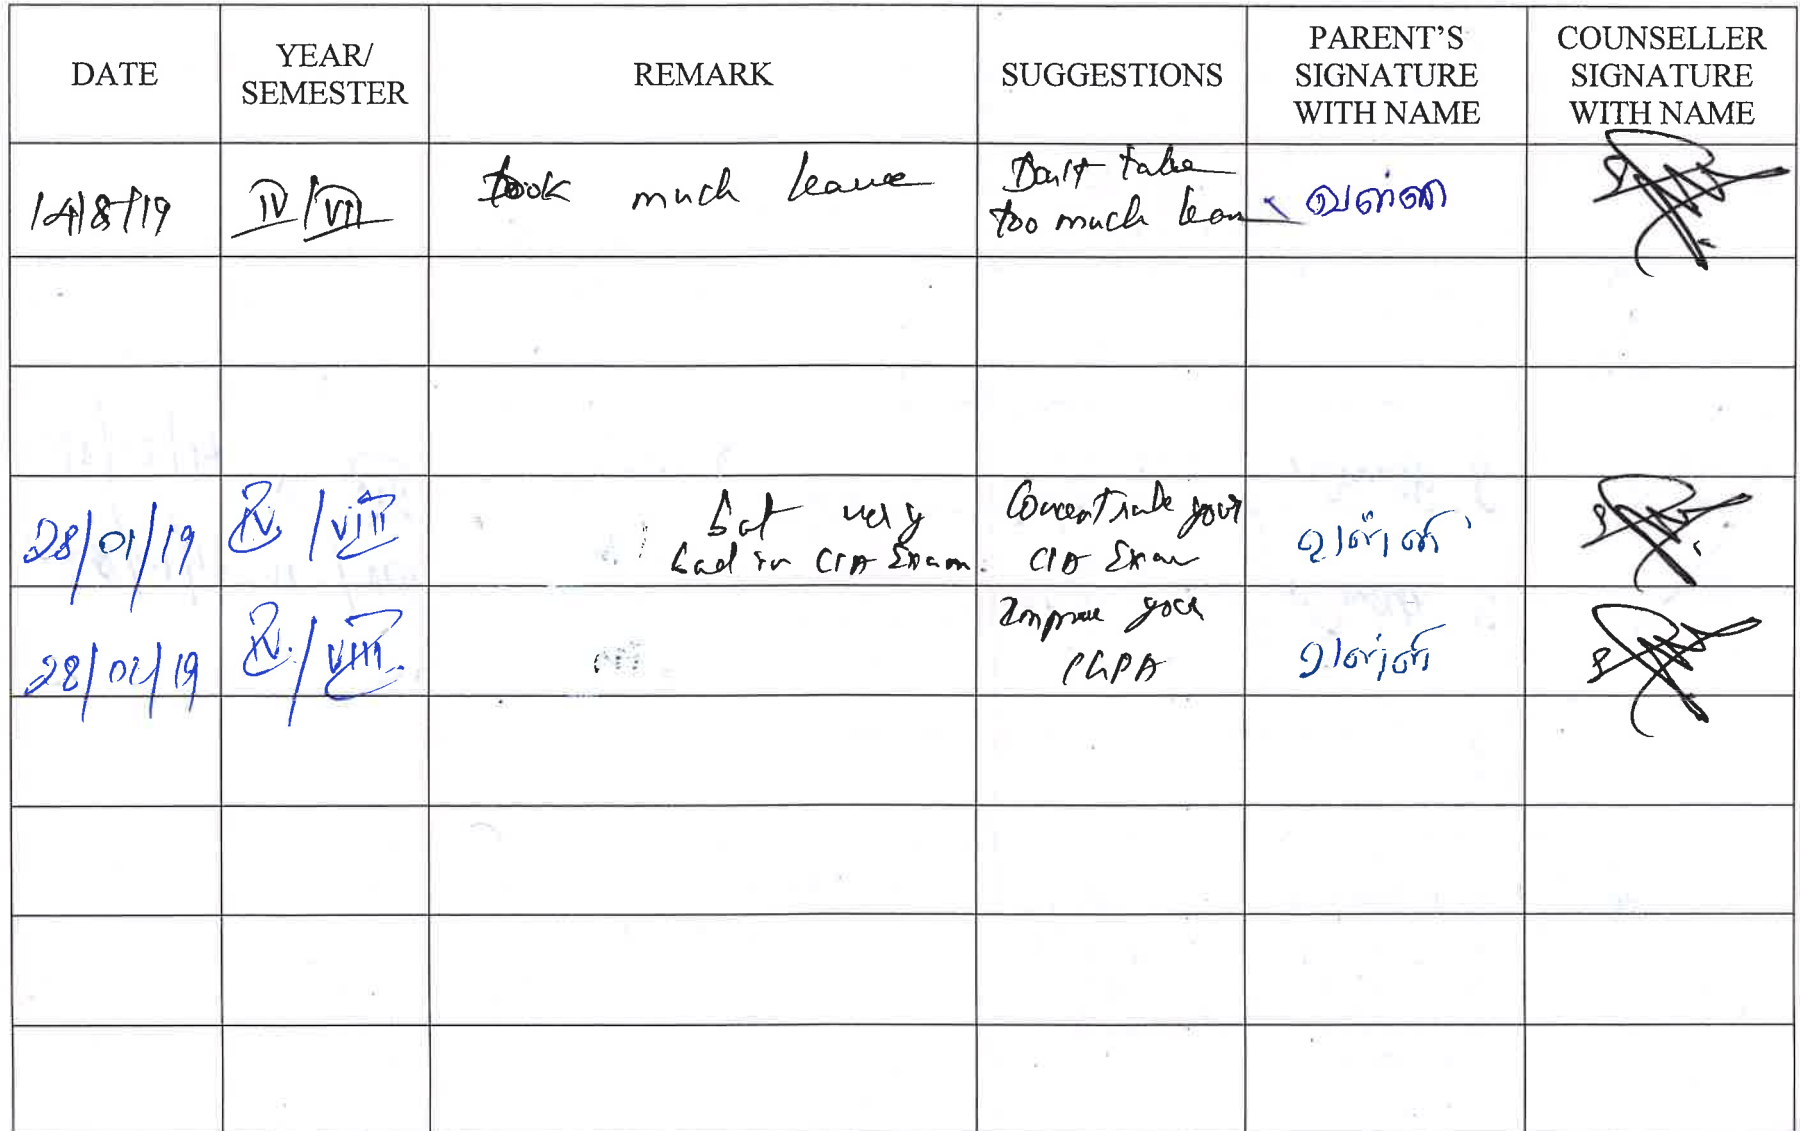 DATE
YEAR/
SEMESTER
REMARK
SUGGESTIONS
PARENT'S
SIGNATURE
WITH NAME
COUNSELLER
SIGNATURE
WITH NAME
14/8/19
IV/VII
took much leave
Don't take
too much leave
28/01/19
IV/VIII
very
bad in CIA Exam.
Concentrate your
CIA Exam
வள்ளி
28/01/19
IV/VIII
Improve your
CGPA
வள்ளி